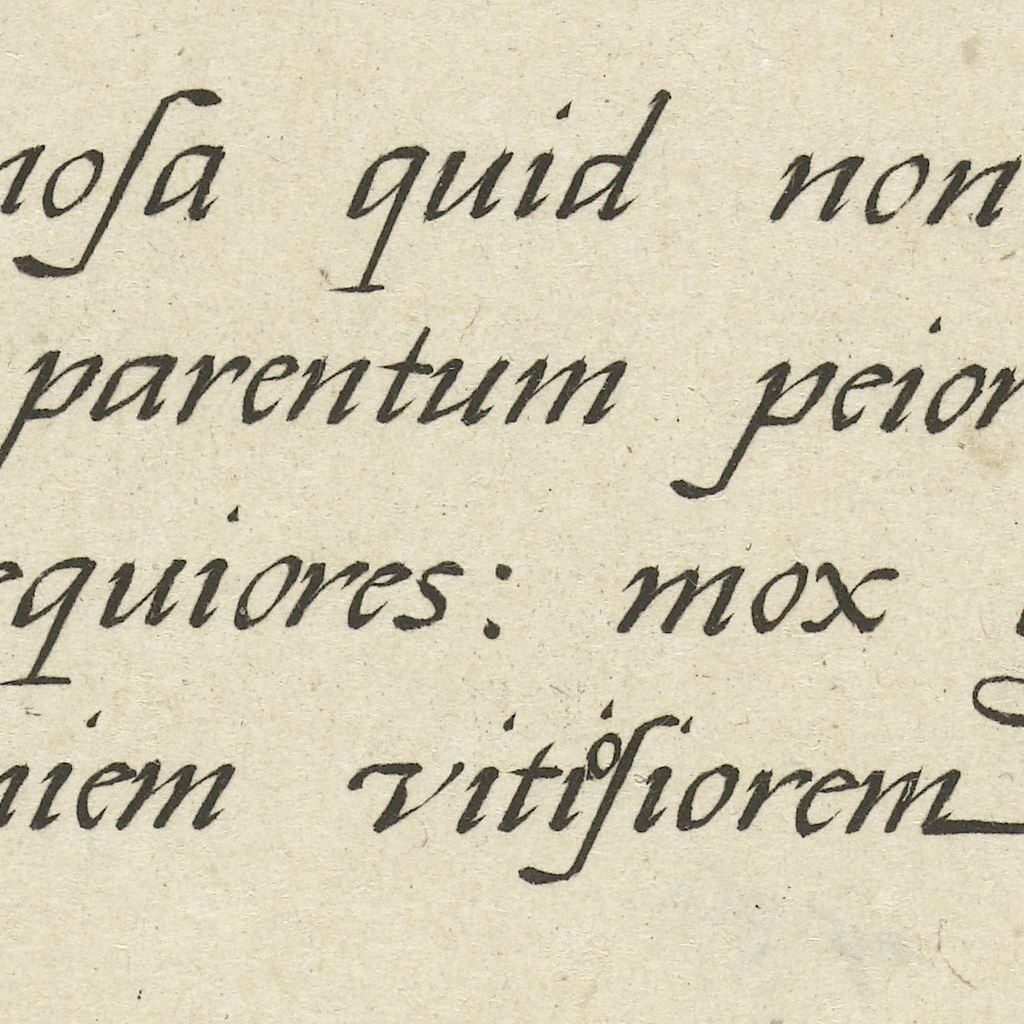 noſa quid non
parentum peior
equiores: mox
niem vitioſiorem